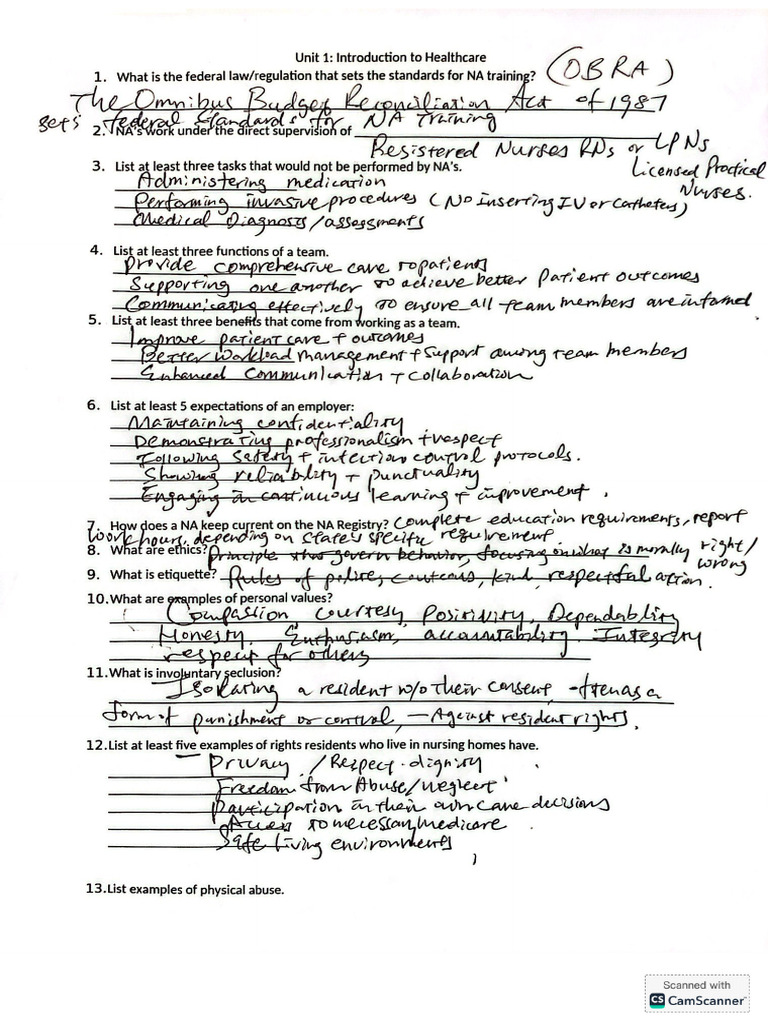 Unit 1: Introduction to Healthcare
1. What is the federal law/regulation that sets the standards for NA training? (OBRA)
The Omnibus Budget Reconciliation Act of 1987
sets federal standards for NA Training
2. NA's work under the direct supervision of
Registered Nurses RNs or LPNs
Licensed Practical
Nurses.
3. List at least three tasks that would not be performed by NA's.
Administering medication
Performing invasive procedures (No inserting IV or Catheters)
Medical Diagnosis/assessments
4. List at least three functions of a team.
Provide comprehensive care to patients
Supporting one another to achieve better patient outcomes
Communicating effectively to ensure all team members are informed
5. List at least three benefits that come from working as a team.
Improve patient care + outcomes
Better workload management + support among team members
Enhanced Communication + collaboration
6. List at least 5 expectations of an employer:
Maintaining confidentiality
Demonstrating professionalism + respect
Following safety + infection control protocols.
Showing reliability + punctuality
Engaging in continuous learning + improvement.
7. How does a NA keep current on the NA Registry? Complete education requirements, report
work hours, depending on state's specific requirement.
8. What are ethics? Principle that govern behavior, focusing on what is morally right/
wrong
9. What is etiquette? Rules of polite, courteous, kind, respectful action.
10. What are examples of personal values?
Compassion courtesy, Positivity, Dependability
Honesty, Enthusiasm, accountability Integrity
respect for others
11. What is involuntary seclusion?
Isolating a resident w/o their consent, often as a
form of punishment or control, - Against resident rights.
12. List at least five examples of rights residents who live in nursing homes have.
Privacy / Respect dignity
Freedom from Abuse/neglect
Participation in their own care decisions
Access to necessary medicare
Safe living environments
13. List examples of physical abuse.
Scanned with
CS CamScanner